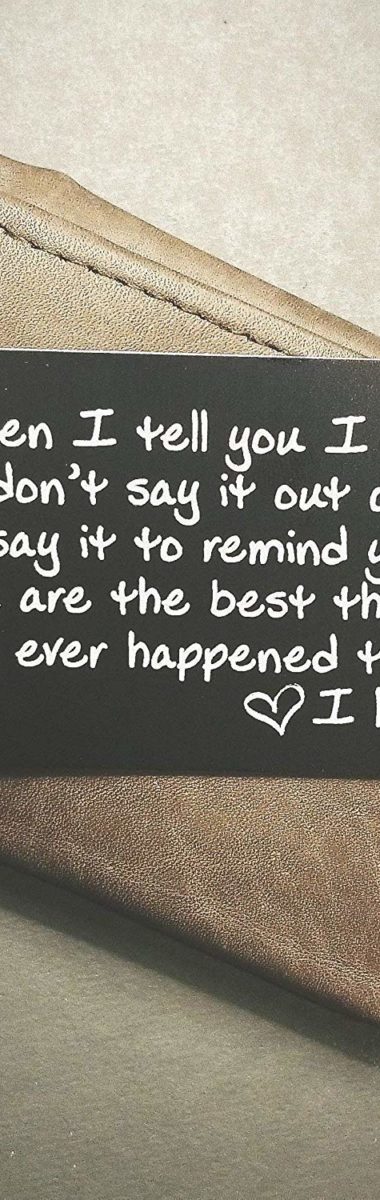 en I tell you I
don't say it out
say it to remind
are the best th
ever happened t
♡ I